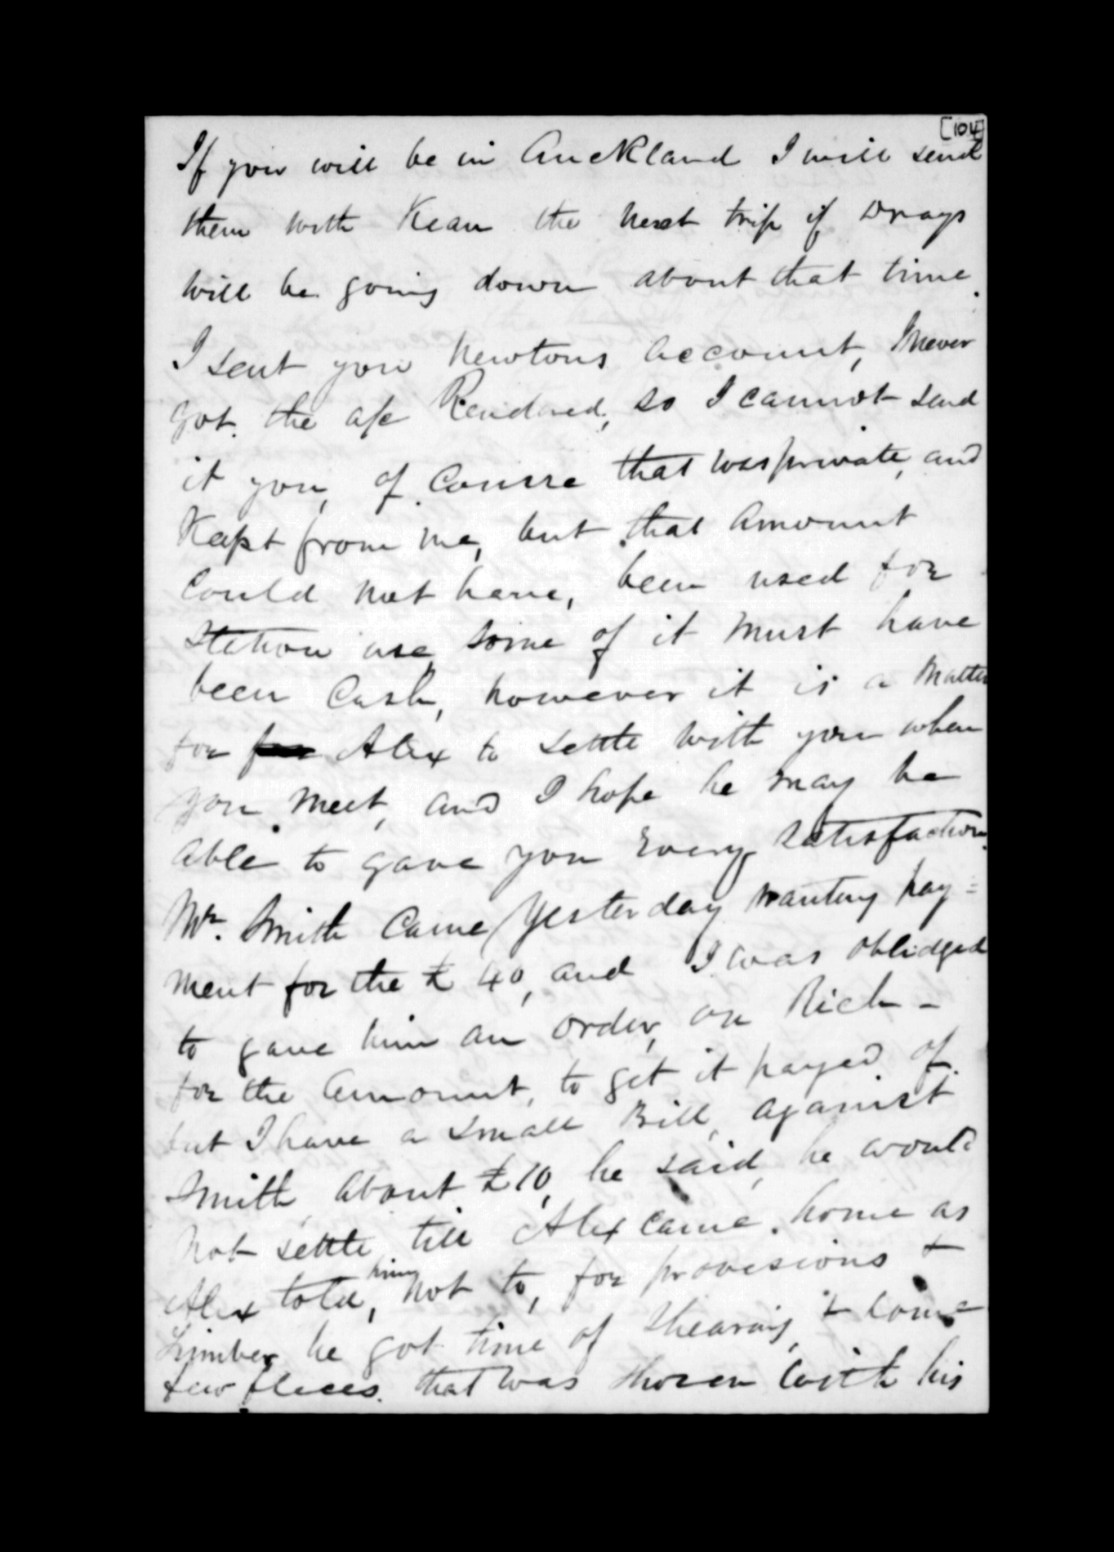 [104]
If you will be in Auckland I will send
them with Kean the next trip if Drays
will be going down about that time.
I sent you Newtons account, I never
got. the a/c Rendered, so I cannot send
it you, of course that was private, and
Kept from me, but that amount
Could not have, been used for
Station use, some of it must have
been Cash, however it is a Matter
for Alex to settle with you when
you meet, and I hope he may be
Able to gave you Every Satisfaction.
Mr. Smith Came Yesterday wanting pay=
ment for the £40, and I was oblidged
to gave him an order, on Rich -
for the Amount, to get it payed of
but I have a small Bill, against
Smith, about £10, he said, he would
not settle, till Alex came. home as
Alex told, him not to, for provisions +
Timber he got time of Shearing, +
few fleeces. that was shoren with his